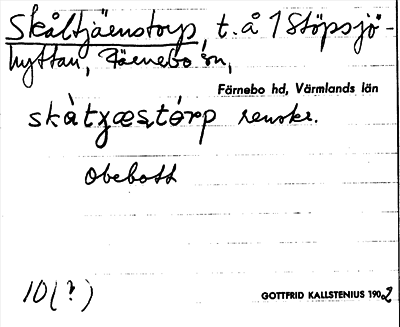 Skåltjäenstorp, t. å 1 Stöpsjö-
hyttan, Färnebo sn,
Färnebo hd, Värmlands län
skàtxæstórp renskr.
Obebott
10(?)
GOTTFRID KALLSTENIUS 1902